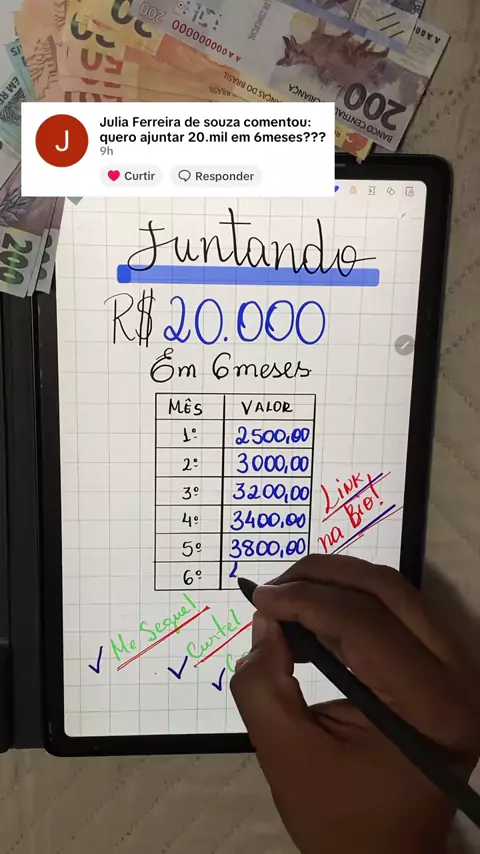 200
BANCO CENTRAL
200
Julia Ferreira de souza comentou:
quero ajuntar 20.mil em 6meses???
9h
Curtir
Responder
Juntando
R$ 20.000
Em 6 meses
MÊS VALOR
1º 2500,00
2º 3000,00
3º 3200,00
4º 3400,00
5º 3800,00
6º
Link
na Bio!
Me Segue!
Curte!